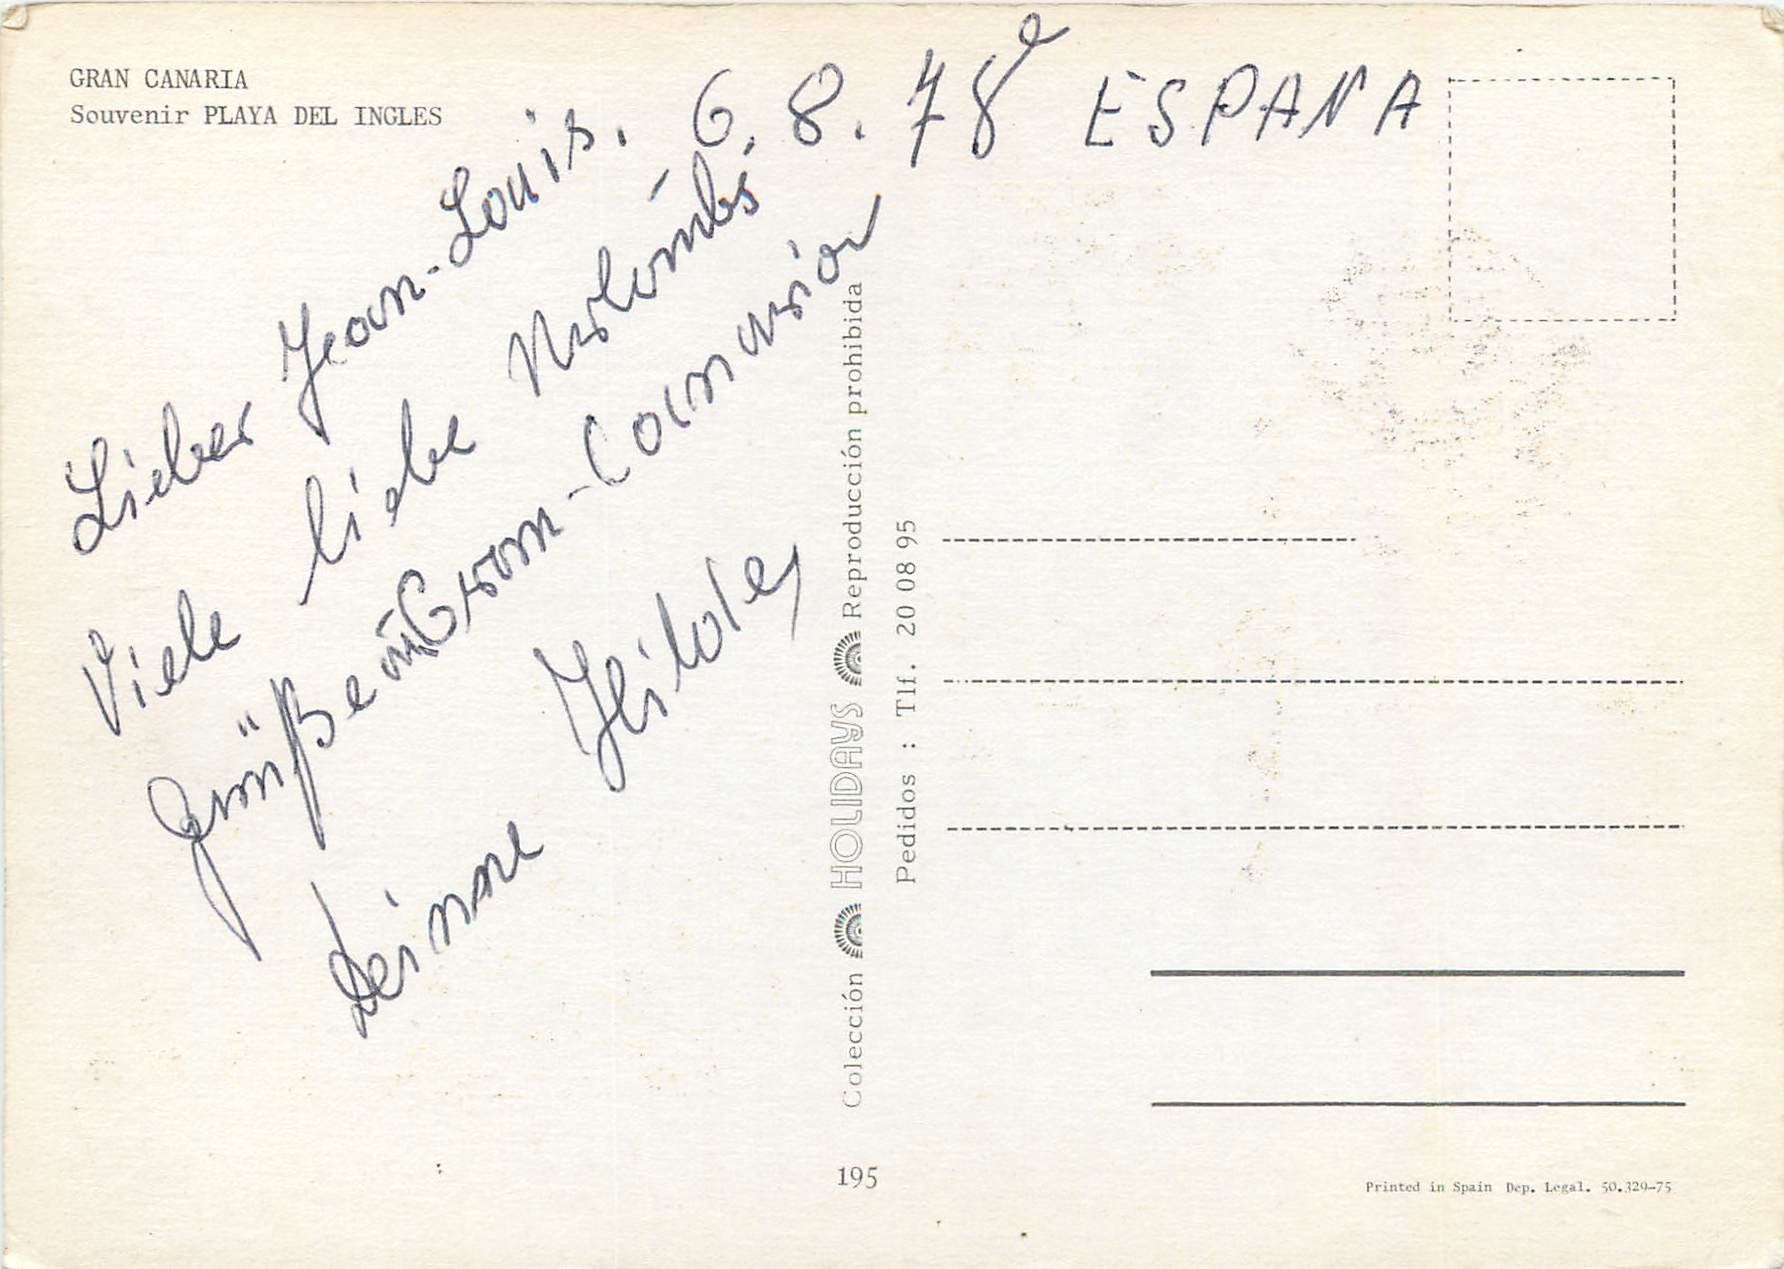 GRAN CANARIA
Souvenir PLAYA DEL INGLES
6. 8. 78 ESPANA
Lieber Jean-Louis.
Viele liebe Urlaubs-
grüße Gran-Canaria
Deine Hilde
Colección HOLIDAYS Reproducción prohibida
Pedidos : Tlf. 20 08 95
195
Printed in Spain Dep. Legal. 50.329-75